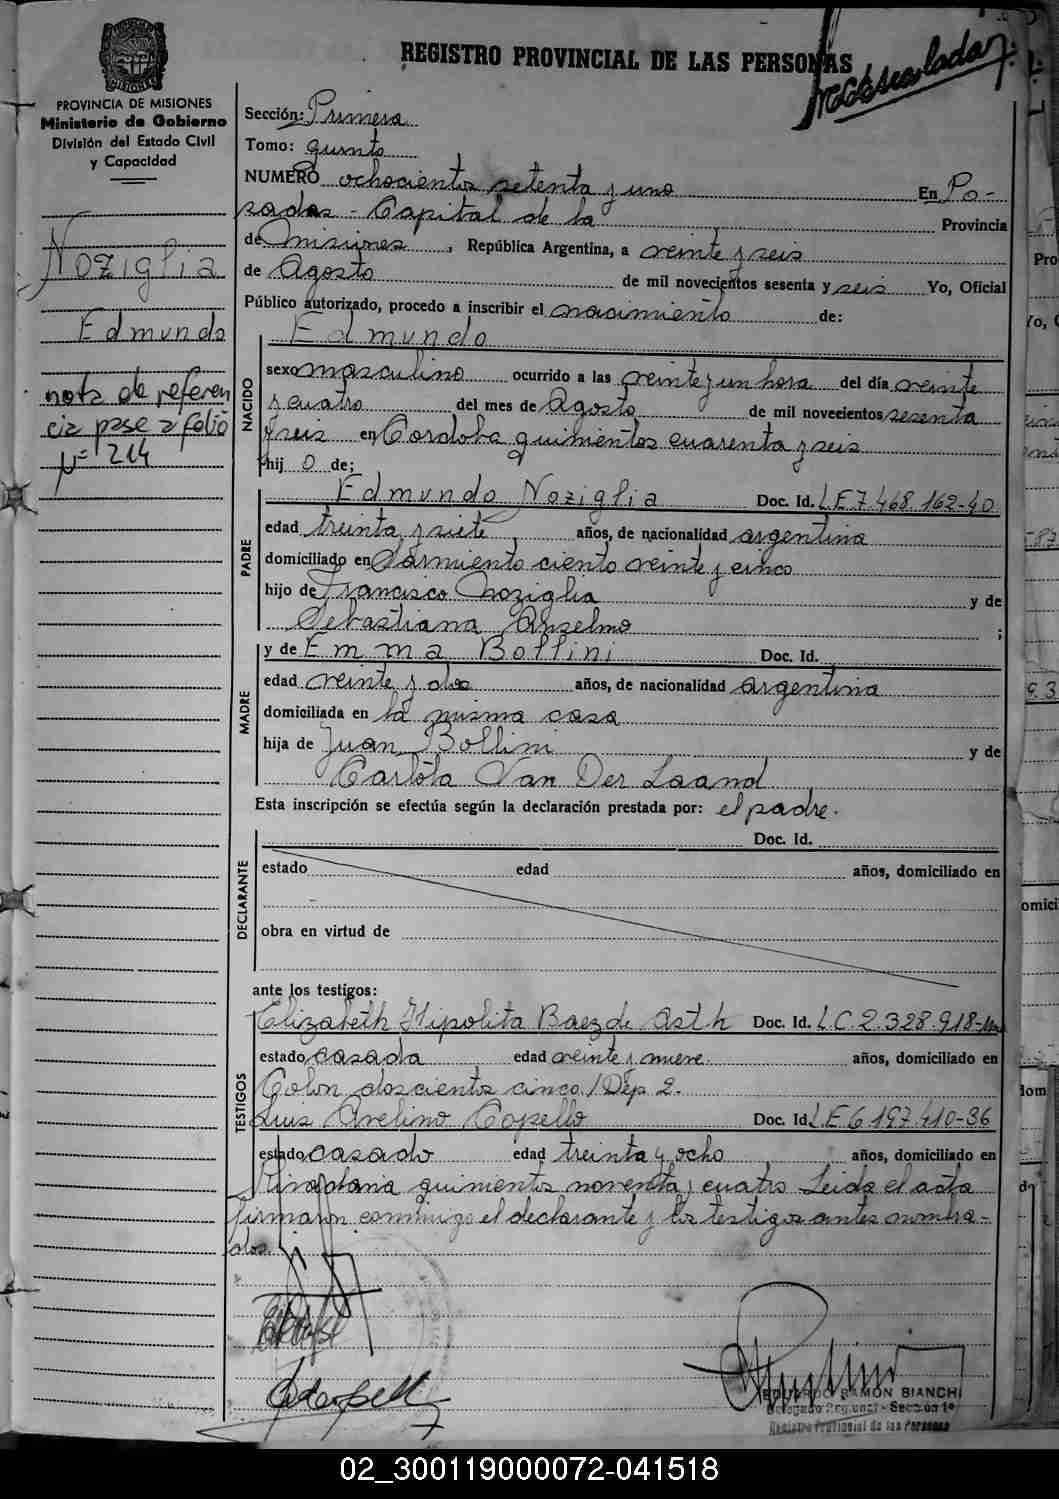 REGISTRO PROVINCIAL DE LAS PERSONAS
PROVINCIA DE MISIONES
Ministerio de Gobierno
División del Estado Civil
y Capacidad
Noziglia
Edmundo
nota de referen
cia pase a folio
Nº 214
Sección: Primera
Tomo: quinto
NUMERO ochocientos setenta y uno En Po-
sadas - Capital de la Provincia
de Misiones, República Argentina, a veinte y seis
de Agosto de mil novecientos sesenta y seis Yo, Oficial
Público autorizado, procedo a inscribir el nacimiento de:
Edmundo
NACIDO
sexo masculino ocurrido a las veinte y un hora del día veinte
y cuatro del mes de Agosto de mil novecientos sesenta
y seis en Cordoba quinientos cuarenta y seis
hij o de;
PADRE
Edmundo Noziglia Doc. Id. L.E 7.468.162-40
edad treinta y siete años, de nacionalidad argentina
domiciliado en Sarmiento ciento veinte y cinco
hijo de Francisco Noziglia y de
Sebastiana Anselmo ;
MADRE
y de Emma Bollini Doc. Id.
edad veinte y dos años, de nacionalidad argentina
domiciliada en la misma casa
hija de Juan Bollini y de
Carlota Van Der Laand
Esta inscripción se efectúa según la declaración prestada por: el padre.
DECLARANTE
Doc. Id.
estado edad años, domiciliado en
obra en virtud de
ante los testigos:
TESTIGOS
Elizabeth Hipolita Baez de Asth Doc. Id. L.C.2.328.918-
estado casada edad veinte y nueve. años, domiciliado en
Colon doscientos cinco / Dep. 2.
Luis Avelino Copello Doc. Id. L.E 6.197.410-36
estado casado edad treinta y ocho años, domiciliado en
Rivadavia quinientos noventa y cuatro Leida el acta
firmaron conmigo el declarante y los testigos antes nombra-
dos.
EDUARDO RAMON BIANCHI
Delegado Regional - Sección 1ª
Registro Provincial de las Personas
02_300119000072-041518